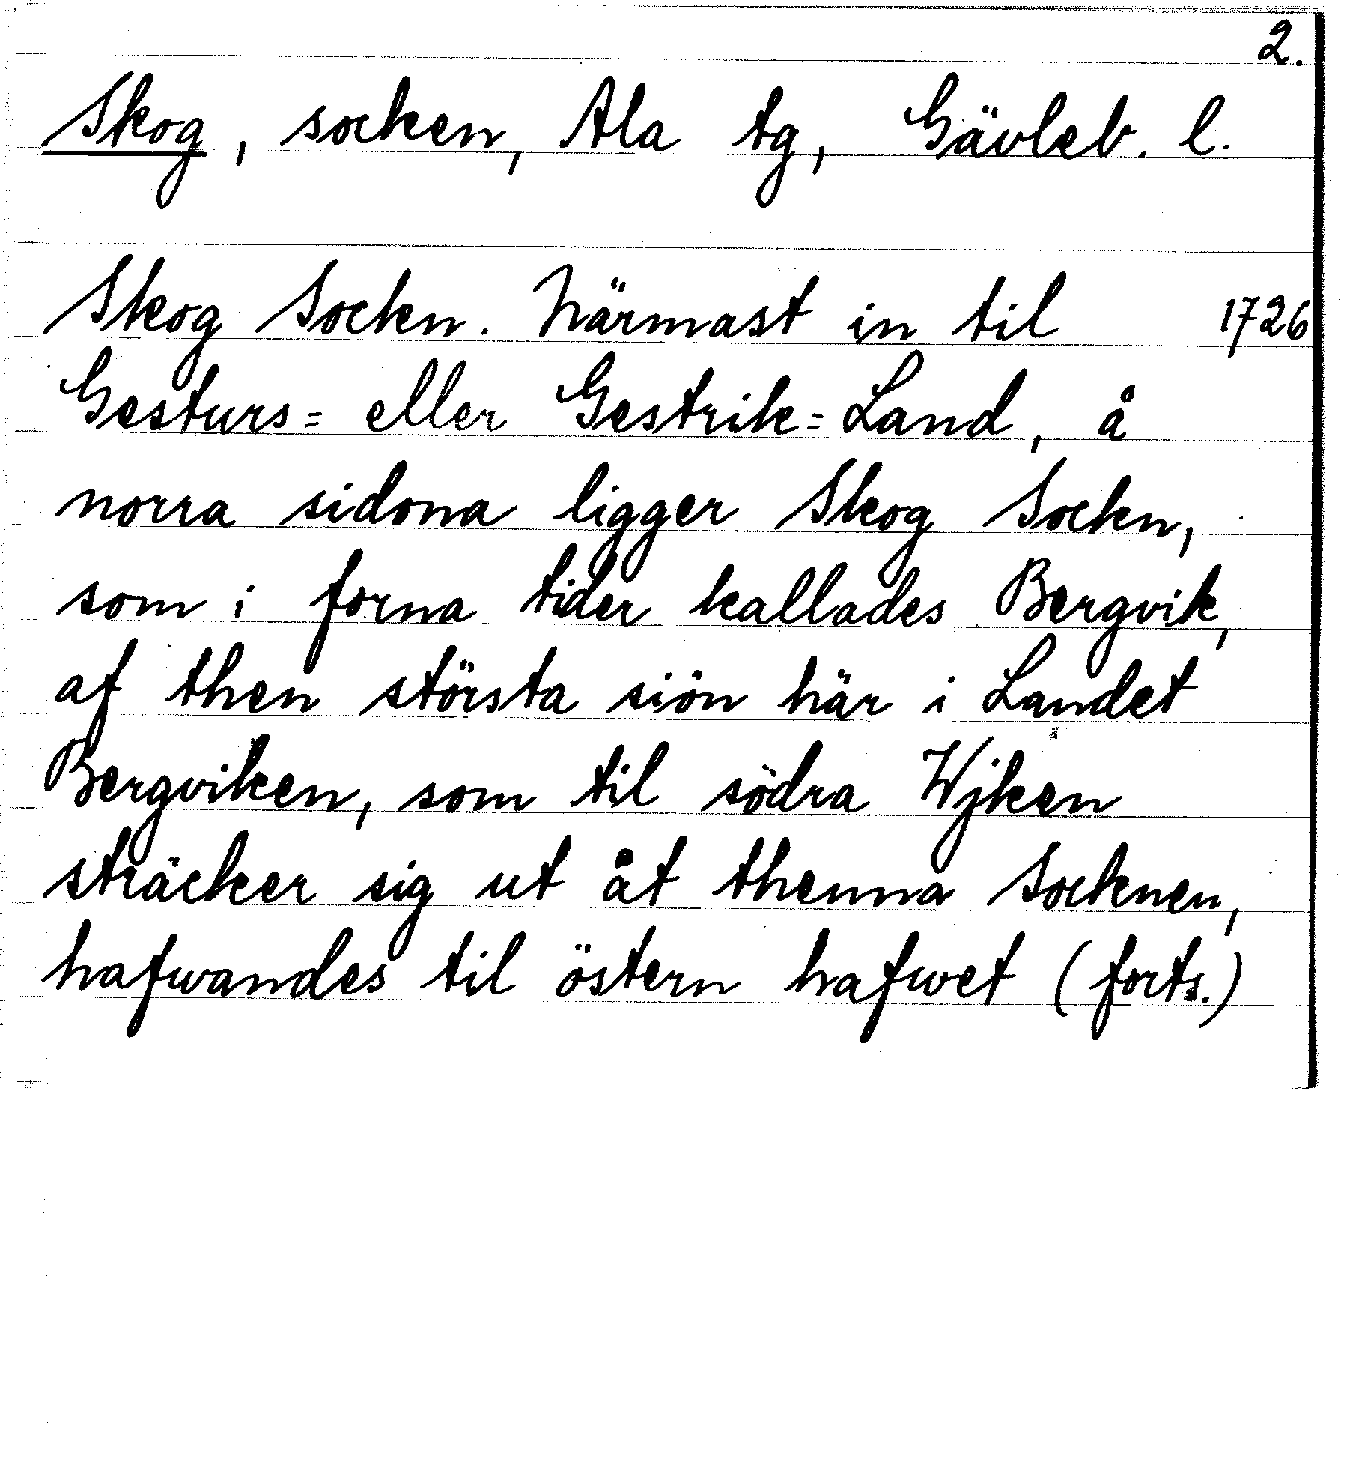 2.
Skog, socken, Ala tg, Gävleb. l.
Skog Sockn. Närmast in til 1726
Gesturs= eller Gestrik=Land, å
norra sidona ligger Skog Sockn,
som i forna tider kallades Bergvik,
af then största siön här i Landet
Bergviken, som til södra Wjken
sträcker sig ut åt thenna Socknen,
hafwandes til östern hafwet (forts.)